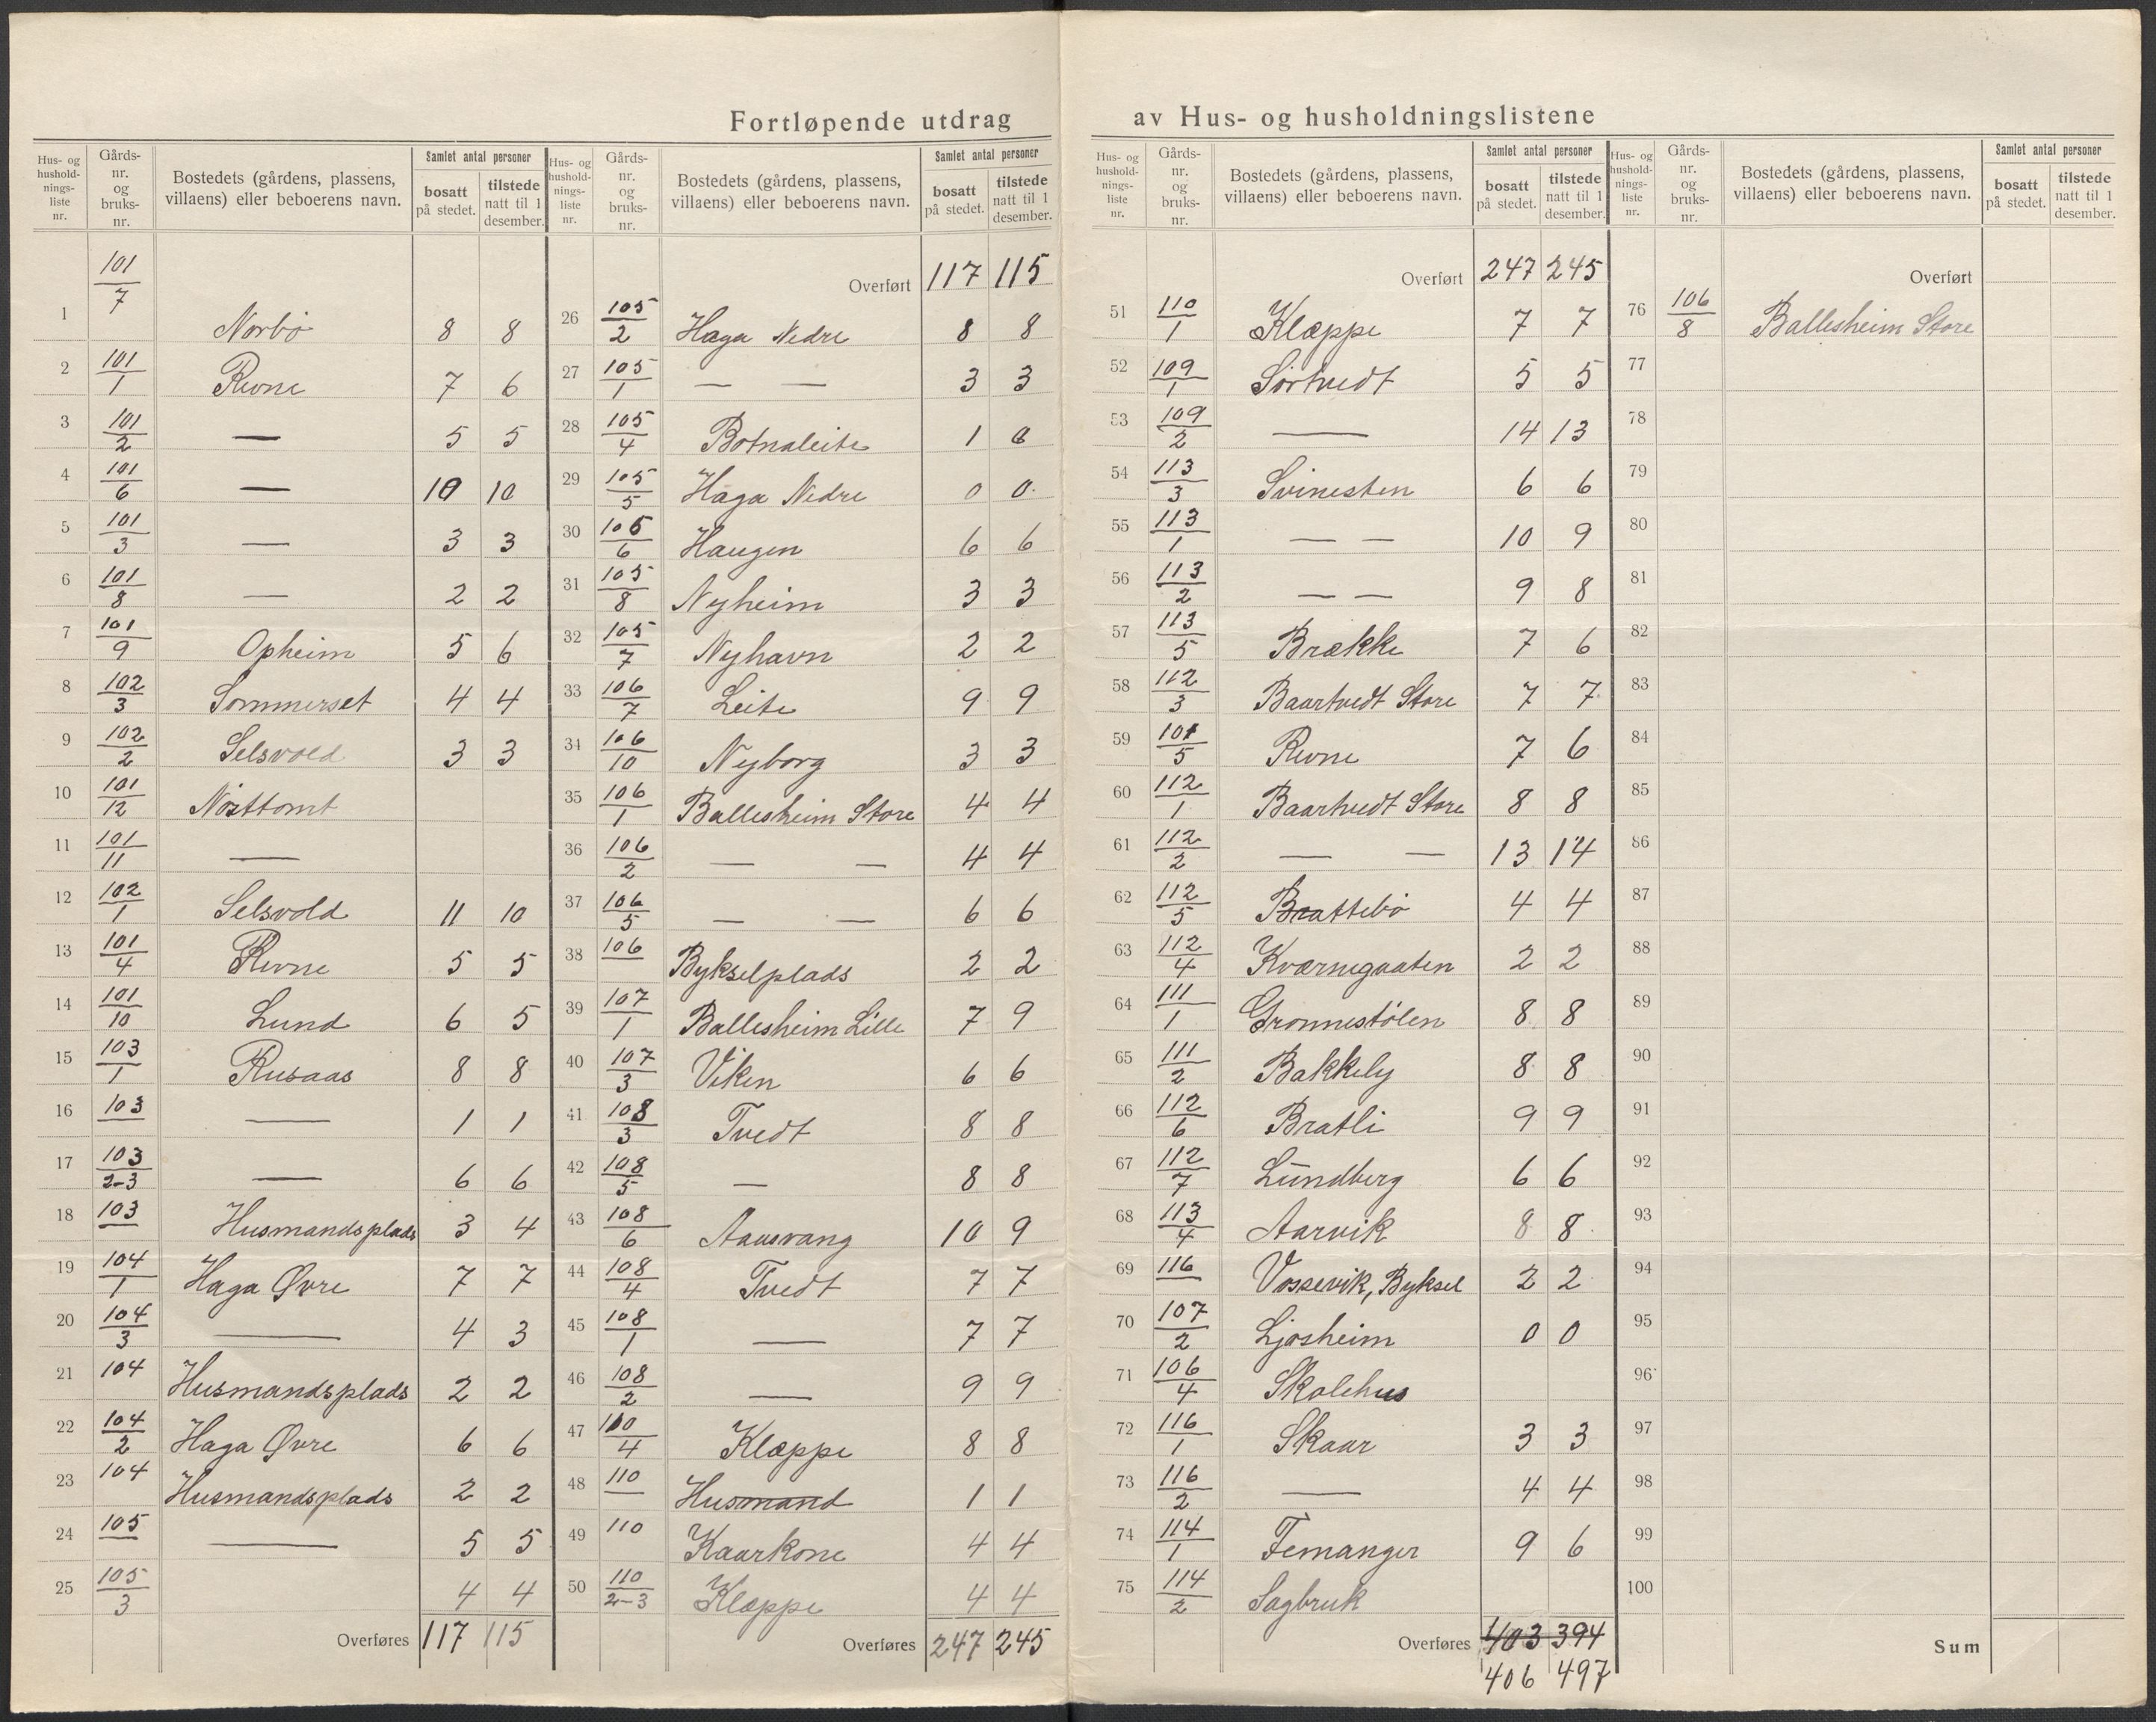 Fortløpende utdrag av Hus- og husholdningslistene
Hus- og husholdnings-liste nr. | Gårds-nr. og bruks-nr. | Bostedets (gårdens, plassens, villaens) eller beboerens navn. | Samlet antal personer | bosatt på stedet. | tilstede natt til 1 desember.
1 101/7 Norbø 8 8
2 101/1 Revne 7 6
3 101/2 — 5 5
4 101/6 — 10 10
5 101/3 — 3 3
6 101/8 — 2 2
7 101/9 Opheim 5 6
8 102/3 Sommerset 4 4
9 102/2 Selsvold 3 3
10 101/12 Nøsttomt
11 101/11 —
12 102/1 Selsvold 11 10
13 101/4 Revne 5 5
14 101/10 Lund 6 5
15 103/1 Rusaas 8 8
16 103 — 1 1
17 103/2-3 — 6 6
18 103 Husmandsplads 3 4
19 104/1 Haga Øvre 7 7
20 104/3 — 4 3
21 104 Husmandsplads 2 2
22 104/2 Haga Øvre 6 6
23 104 Husmandsplads 2 2
24 105 — 5 5
25 105/3 4 4
Overføres 117 115
Hus- og husholdnings-liste nr. | Gårds-nr. og bruks-nr. | Bostedets (gårdens, plassens, villaens) eller beboerens navn. | Samlet antal personer | bosatt på stedet. | tilstede natt til 1 desember.
Overført 117 115
26 105/2 Haga Nedre 8 8
27 105/1 — — 3 3
28 105/4 Botnaleite 1 0
29 105/5 Haga Nedre 0 0
30 105/6 Haugen 6 6
31 105/8 Nyheim 3 3
32 105/7 Nyhavn 2 2
33 106/7 Leite 9 9
34 106/10 Nyborg 3 3
35 106/1 Ballesheim Store 4 4
36 106/2 — — 4 4
37 106/5 — — 6 6
38 106 Bykselplads 2 2
39 107/1 Ballesheim Lille 7 9
40 107/3 Viken 6 6
41 108/3 Tvedt 8 8
42 108/5 — 8 8
43 108/6 Aausvang 10 9
44 108/4 Tvedt 7 7
45 108/1 — 7 7
46 108/2 — 9 9
47 110/4 Klæppe 8 8
48 110 Husmand 1 1
49 110 Kaarkone 4 4
50 110/2-3 Klæppe 4 4
Overføres 247 245
Hus- og husholdnings-liste nr. | Gårds-nr. og bruks-nr. | Bostedets (gårdens, plassens, villaens) eller beboerens navn. | Samlet antal personer | bosatt på stedet. | tilstede natt til 1 desember.
Overført 247 245
51 110/1 Klæppe 7 7
52 109/1 Sørtvedt 5 5
53 109/2 — 14 13
54 113/3 Svinesten 6 6
55 113/1 — — 10 9
56 113/2 — — 9 8
57 113/5 Brække 7 6
58 112/3 Baartvedt Store 7 7
59 101/5 Revne 7 6
60 112/1 Baartvedt Store 8 8
61 112/2 — — 13 14
62 112/5 Brattebø 4 4
63 112/4 Kværnegaaten 2 2
64 111/1 Grønnestølen 8 8
65 111/2 Bakkely 8 8
66 112/6 Bratli 9 9
67 112/7 Lundberg 6 6
68 113/4 Aarvik 8 8
69 116 Vossevik, Byksel 2 2
70 107/2 Ljosheim 0 0
71 106/4 Skolehus
72 116/1 Skaar 3 3
73 116/2 — 4 4
74 114/1 Femanger 9 6
75 114/2 Sagbruk
Overføres 403 394
406 497
Hus- og husholdnings-liste nr. | Gårds-nr. og bruks-nr. | Bostedets (gårdens, plassens, villaens) eller beboerens navn. | Samlet antal personer | bosatt på stedet. | tilstede natt til 1 desember.
Overført
76 106/8 Ballesheim Store
77
78
79
80
81
82
83
84
85
86
87
88
89
90
91
92
93
94
95
96
97
98
99
100
Sum